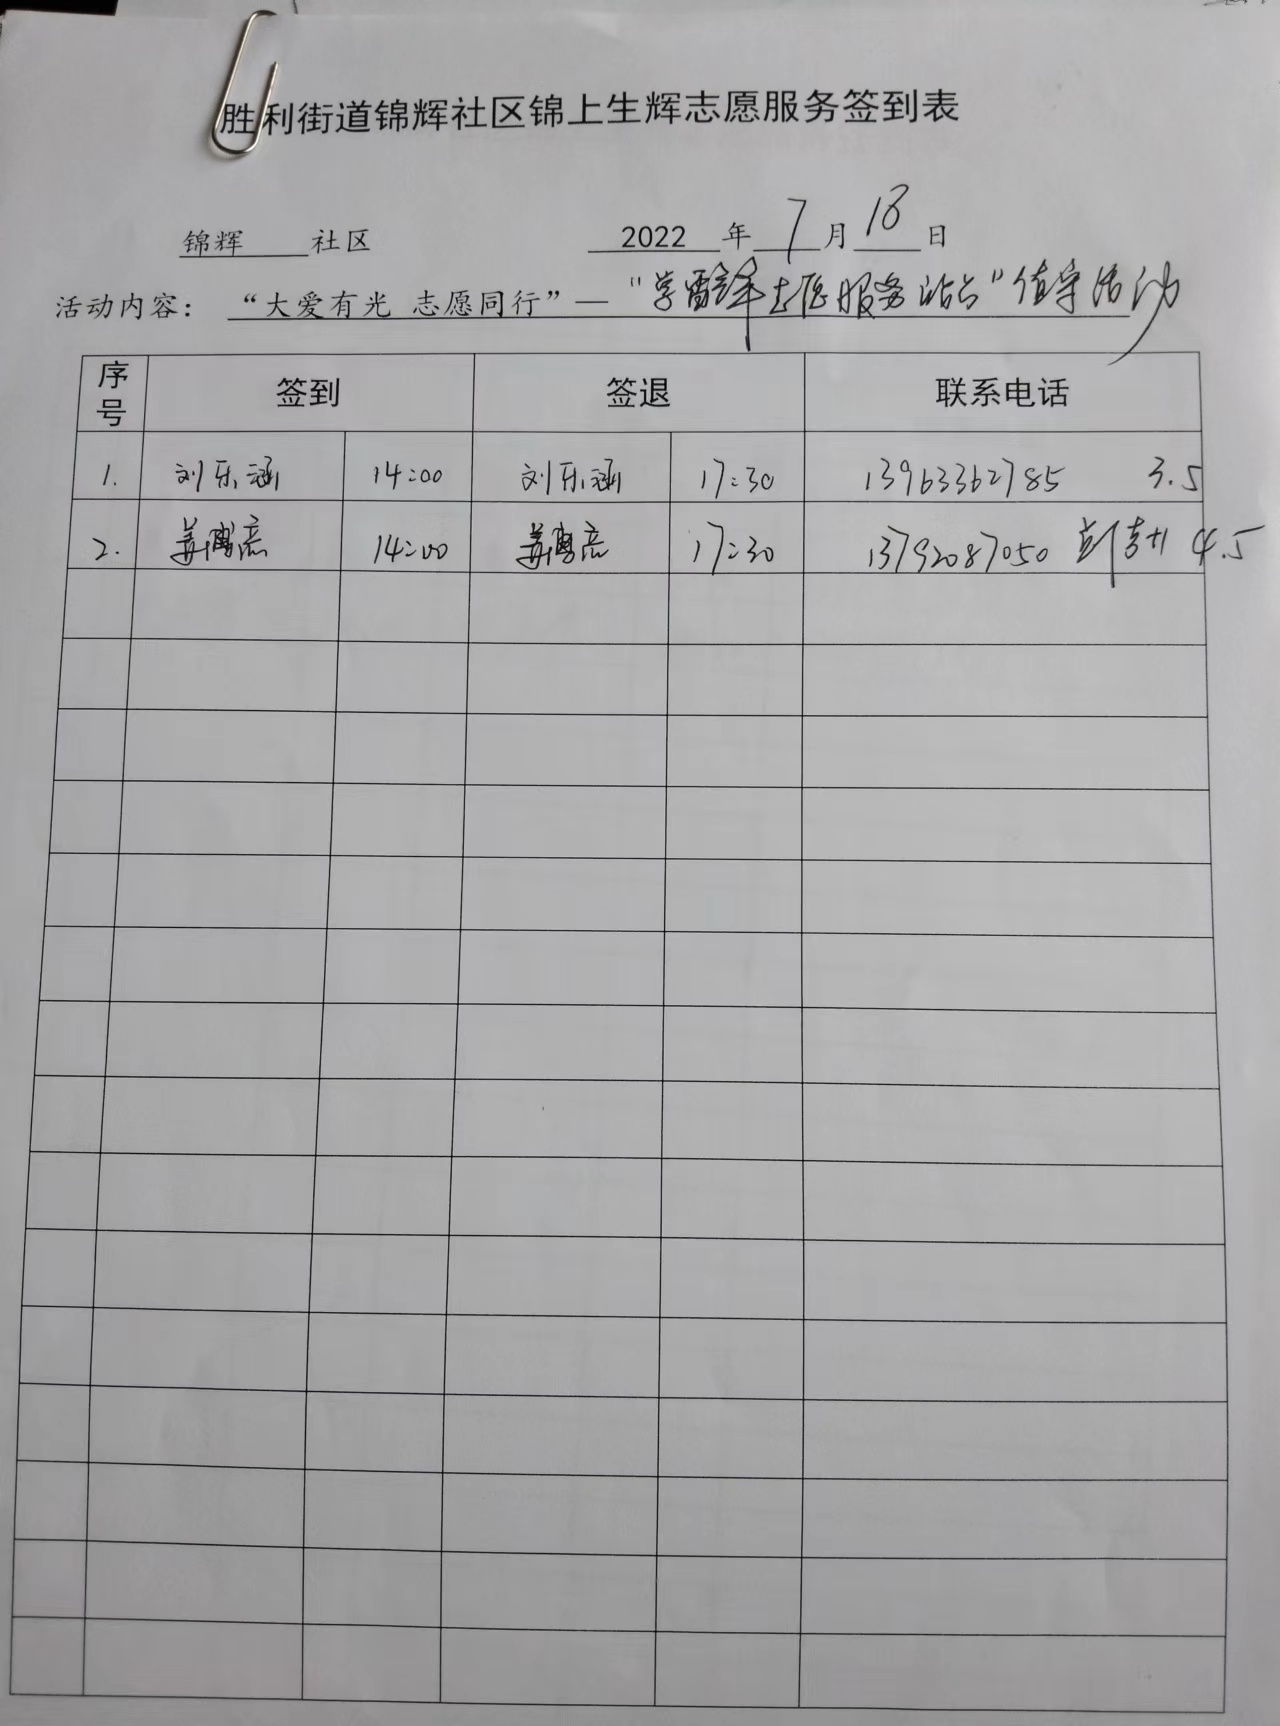 胜利街道锦辉社区锦上生辉志愿服务签到表
锦辉 社区 2022 年 7 月 18 日
活动内容： “大爱有光 志愿同行”—“学雷锋志愿服务站台”值守活动
序号 签到 签退 联系电话
1. 刘乐涵 14:00 刘乐涵 17:30 13963362785 3.5
2. 14:00 17:30 13792087050 4.5